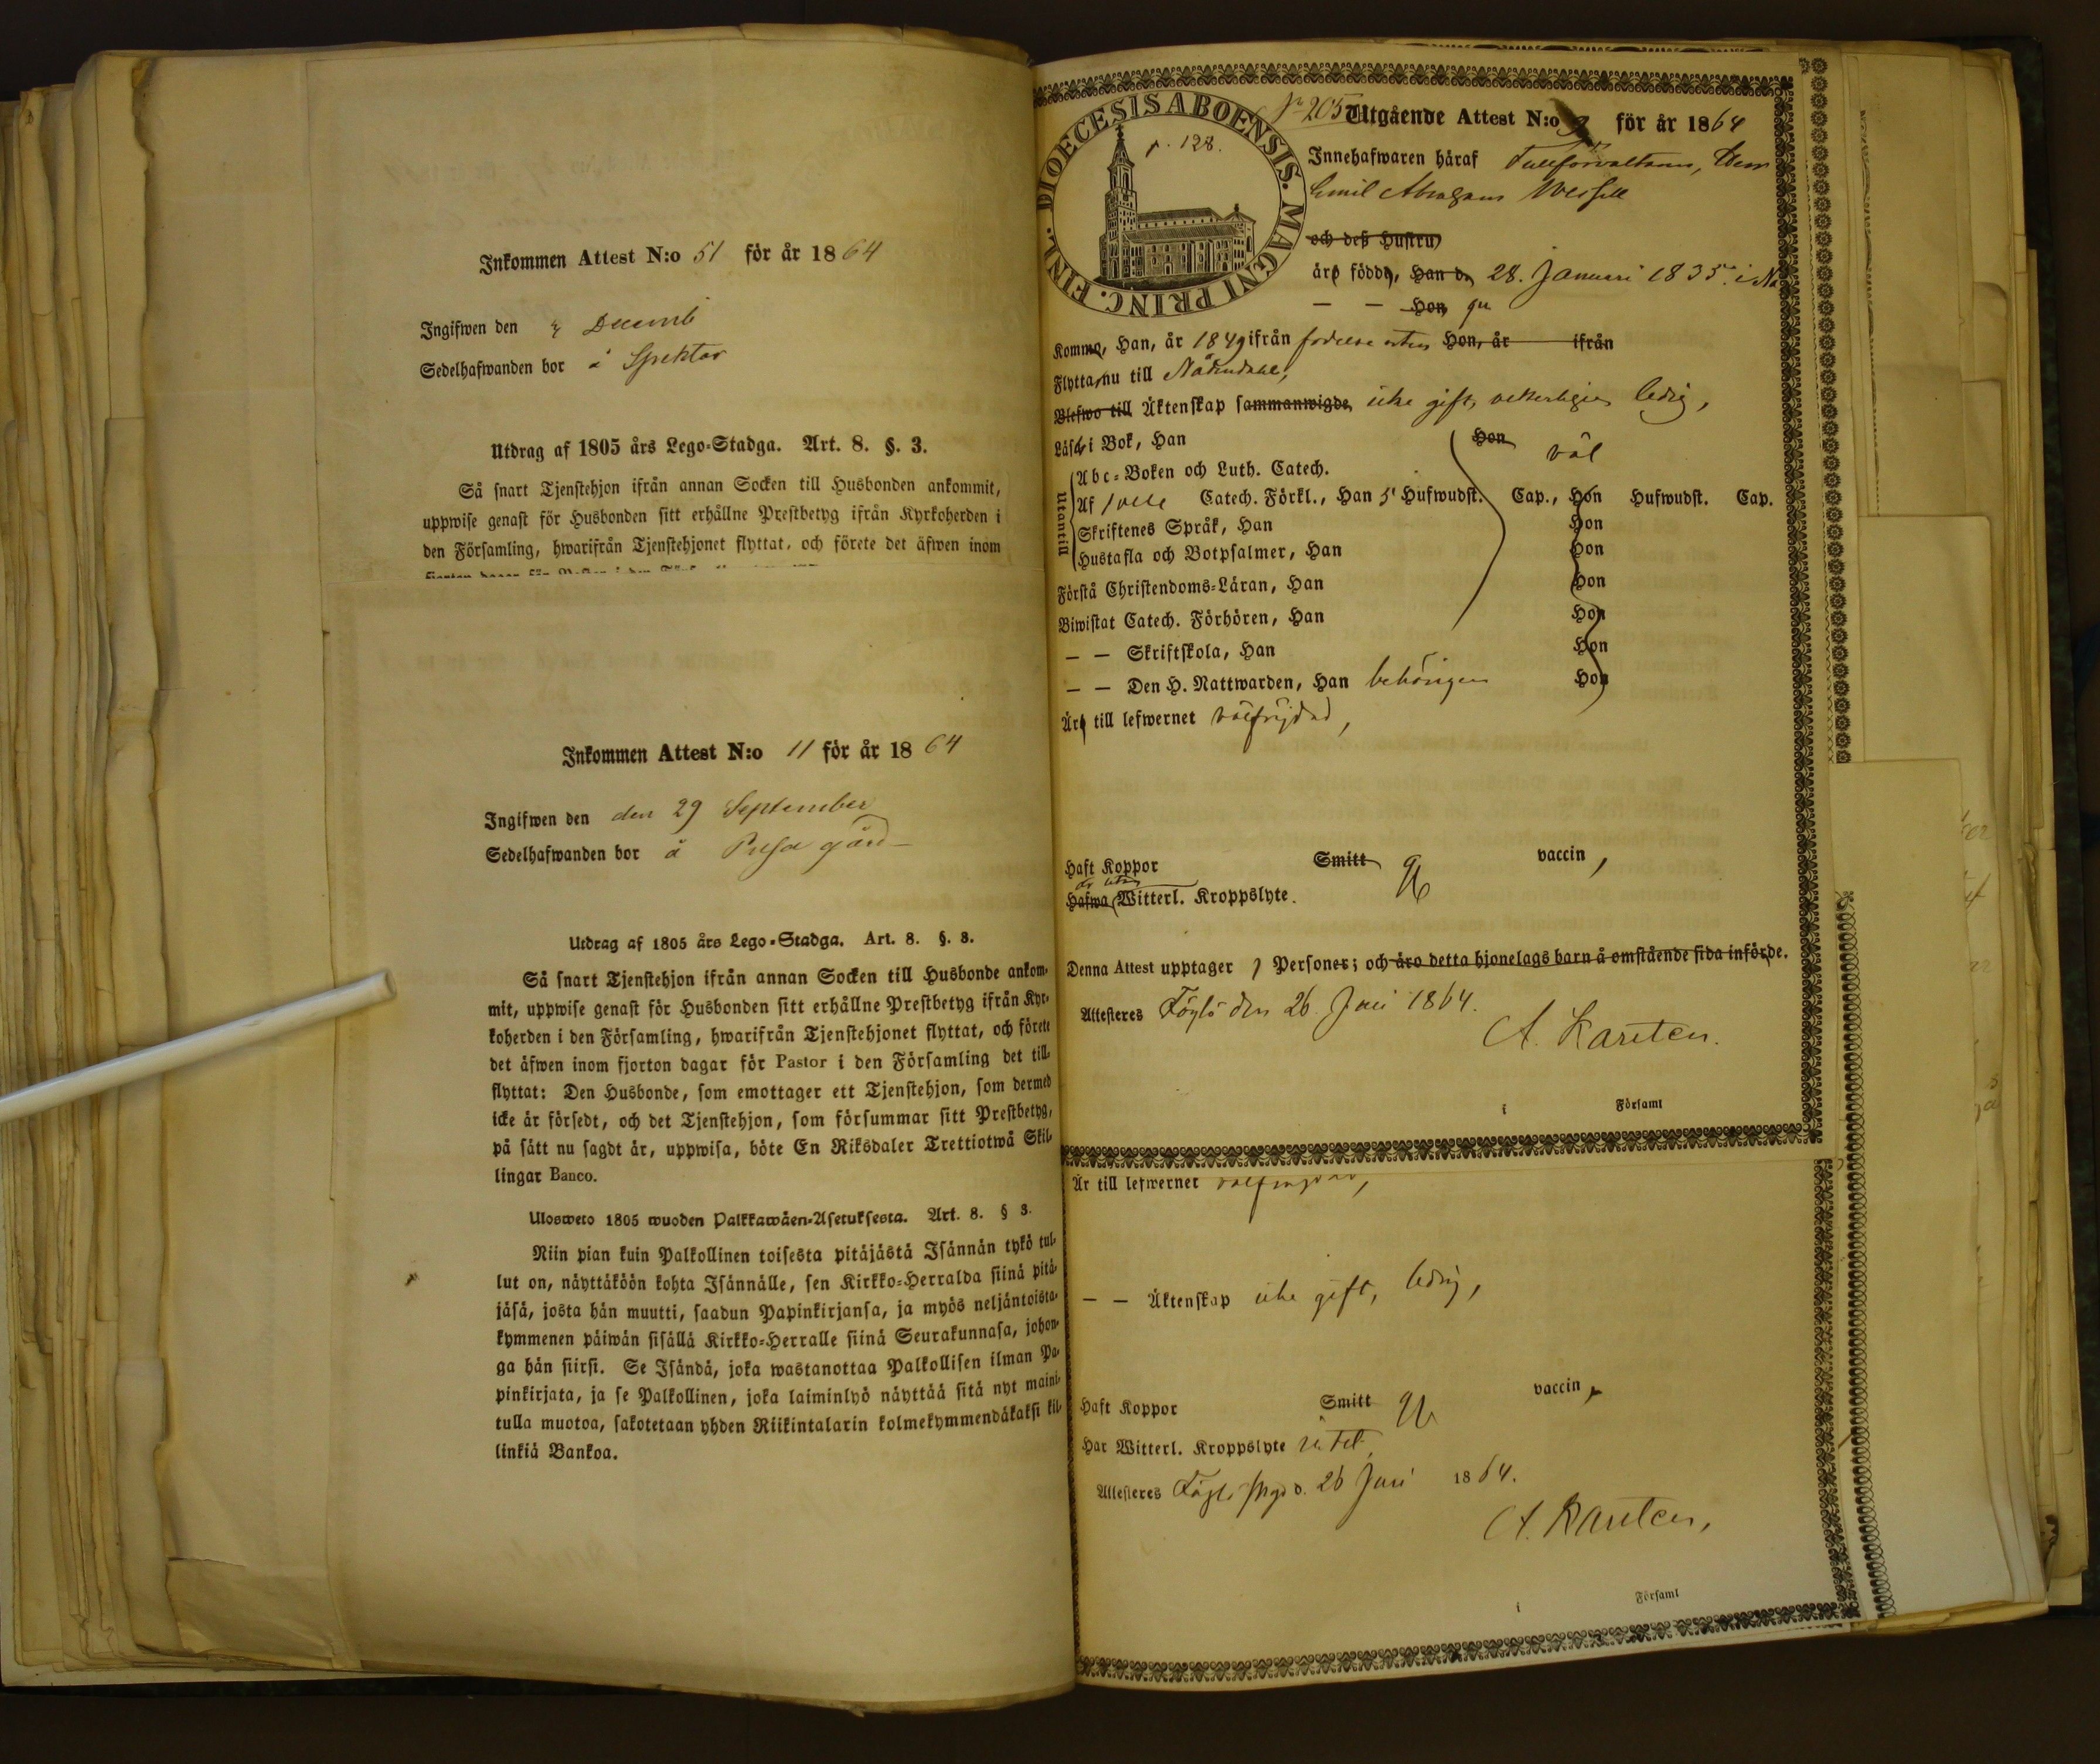 Inkommen Attest N:o 51 för år 1864
Ingifwen den Decemb
Sedelhafwanden bor å Spektar
Utdrag af 1805 års Lego-Stadga. Art. 8. §. 3.
Så snart Tjenstehjon ifrån annan Socken till Husbonden ankommit,
uppwise genast för Husbonden sitt erhållne Prestbetyg ifrån Kyrkoherden i
den Församling, hwarifrån Tjenstehjonet flyttat, och förete det äfwen inom
Inkommen Attest N:o 11 för år 1864
Ingifwen den den 29 September
Sedelhafwanden bor å gård
Utdrag af 1805 års Lego-Stadga. Art. 8. §. 3.
Så snart Tjenstehjon ifrån annan Socken till Husbonde ankom-
mit, uppwise genast för Husbonden sitt erhållne Prestbetyg ifrån Kyr-
koherden i den Församling, hwarifrån Tjenstehjonet flyttat, och förete
det äfwen inom fjorton dagar för Pastor i den Församling det till-
flyttat: Den Husbonde, som emottager ett Tjenstehjon, som dermed
icke är försedt, och det Tjenstehjon, som försummar sitt Prestbetyg,
på sätt nu sagdt är, uppwisa, böte En Riksdaler Trettiotwå Skil-
lingar Banco.
Ulosweto 1805 wuoden Palkkawäen-Asetuksesta. Art. 8. § 3.
Niin pian kuin Palkollinen toisesta pitäjästä Isännän tykö tul-
lut on, näyttäköön kohta Isännälle, sen Kirkko-Herralda siinä pitä-
jäsä, josta hän muutti, saadun Papinkirjansa, ja myös neljäntoista-
kymmenen päiwän sisällä Kirkko-Herralle siinä Seurakunnasa, johon-
ga hän siirsi. Se Isändä, joka wastanottaa Palkollisen ilman Pa-
pinkirjata, ja se Palkollinen, joka laiminlyö näyttää sitä nyt maini-
tulla muotoa, sakotetaan yhden Riikintalarin kolmekymmendäkaksi kil-
linkiä Bankoa.
DIOECESIS ABOENSIS. MAGNI PRINC. FINL.
p. 128.
No 205 Utgående Attest N:o för år 1864
Innehafwaren häraf Tullförvaltaren, Herr
Emil Abraham
och deß Hustru
äro födde, Han d. 28. Januari 1835. i
— — Hon
Komme, Han, år 1849 ifrån födelse orten Hon, år ifrån
Flytta nu till Nådendahl,
Blefwo till Äktenskap sammanwigde, icke gift, veterligen ledig,
Läsa i Bok, Han Hon väl
Utantill
Abc-Boken och Luth. Catech.
Af Catech. Förkl., Han 5 Hufwudst. Cap., Hon Hufwudst. Cap.
Skriftenes Språk, Han Hon
Hustafla och Botpsalmer, Han Hon
Förstå Christendoms-Läran, Han Hon
Biwistat Catech. Förhören, Han Hon
— — Skriftskola, Han Hon
— — Den H. Nattwarden, Han behörigen Hon
Äro till lefwernet välfrejdad,
Haft Koppor Smitt vaccin,
Hafwa Witterl. Kroppslyte.
Denna Attest upptager 1 Personer; och äro detta hjonelags barn å omstående sida införde.
Attesteres Föglö den 26 Juni 1864.
A. Karsten.
i Församl
Är till lefwernet välfrejdad,
— — Äktenskap icke gift, ledig,
Haft Koppor Smitt vaccin,
Har Witterl. Kroppslyte
Attesteres Föglö d. 26 Juni 1864.
A. Karsten,
i Församl